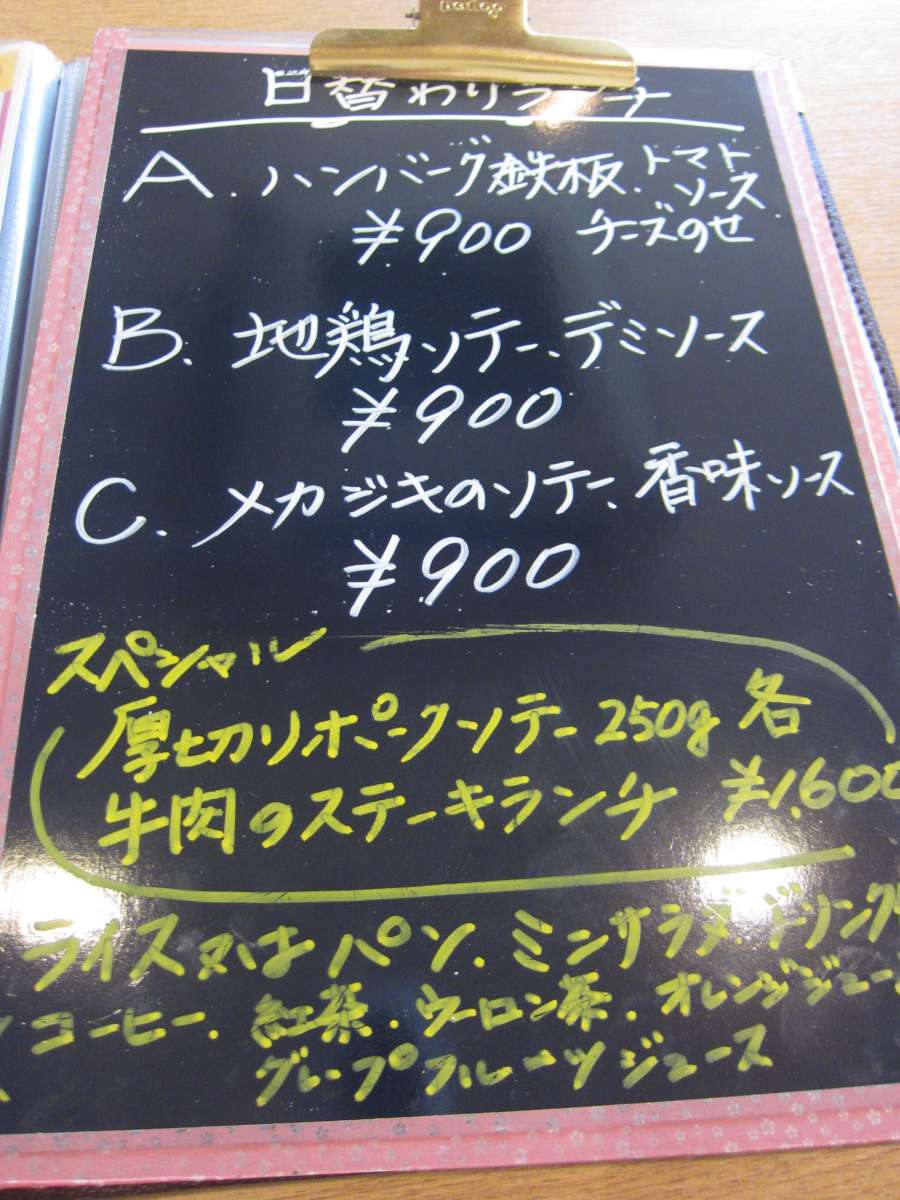 日替わりランチ
A. ハンバーグ鉄板.トマトソース
¥900 チーズのせ
B. 地鶏ソテー、デミソース
¥900
C. メカジキのソテー、香味ソース
¥900
スペシャル
厚切りポークソテー250g 各
牛肉のステーキランチ ¥1,600
ライス又はパン.ミニサラダ.ドリンク
コーヒー.紅茶.ウーロン茶.オレンジジュー
グレープフルーツジュース